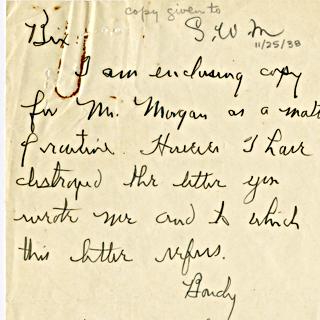 copy given to
Bix: S.W.M
11/25/38
I am enclosing copy
for Mr. Morgan as a matt
of routine. However I have
destroyed the letter you
wrote me and to which
this letter refers.
Bondy